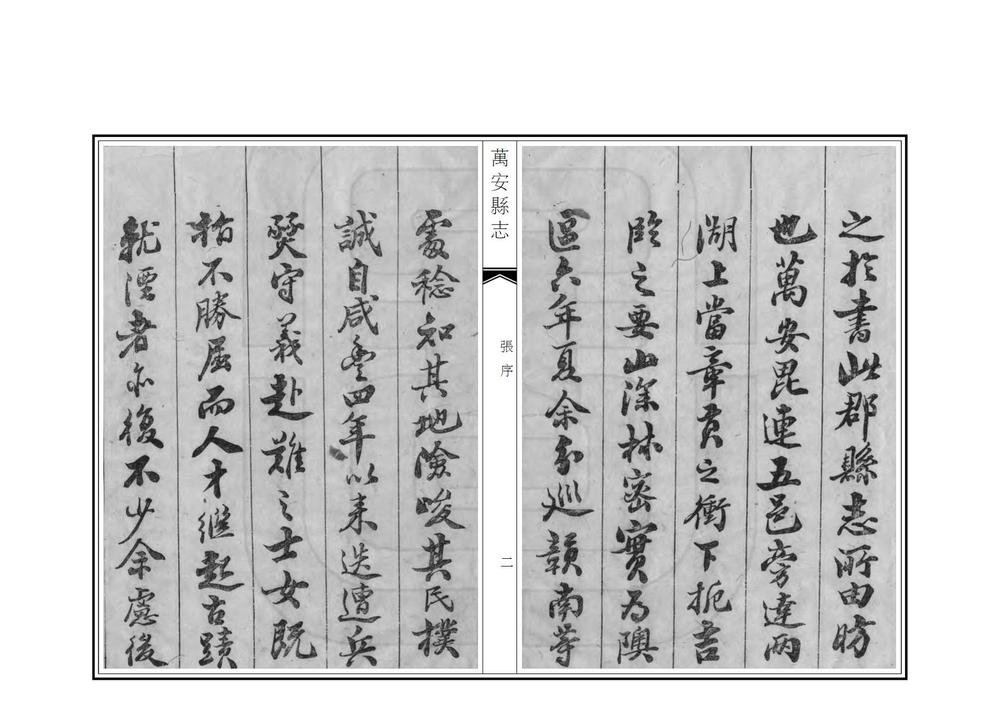 之於書此郡縣志所由昉
也萬安毘連五邑旁達兩
湖上當章貢之衝下扼吉
臨之要山深林密實為隩
區六年夏余分巡贛南等
萬安縣志
張序
二
處稔知其地險峻其民樸
誠自咸豐四年以來迭遭兵
燹守義赴難之士女既
指不勝屈而人才繼起古蹟
就湮者亦復不少余慮後